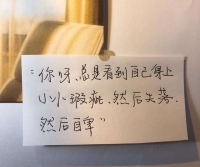 “你呀,总是看到自己身上
小小瑕疵,然后失落,
然后自卑”